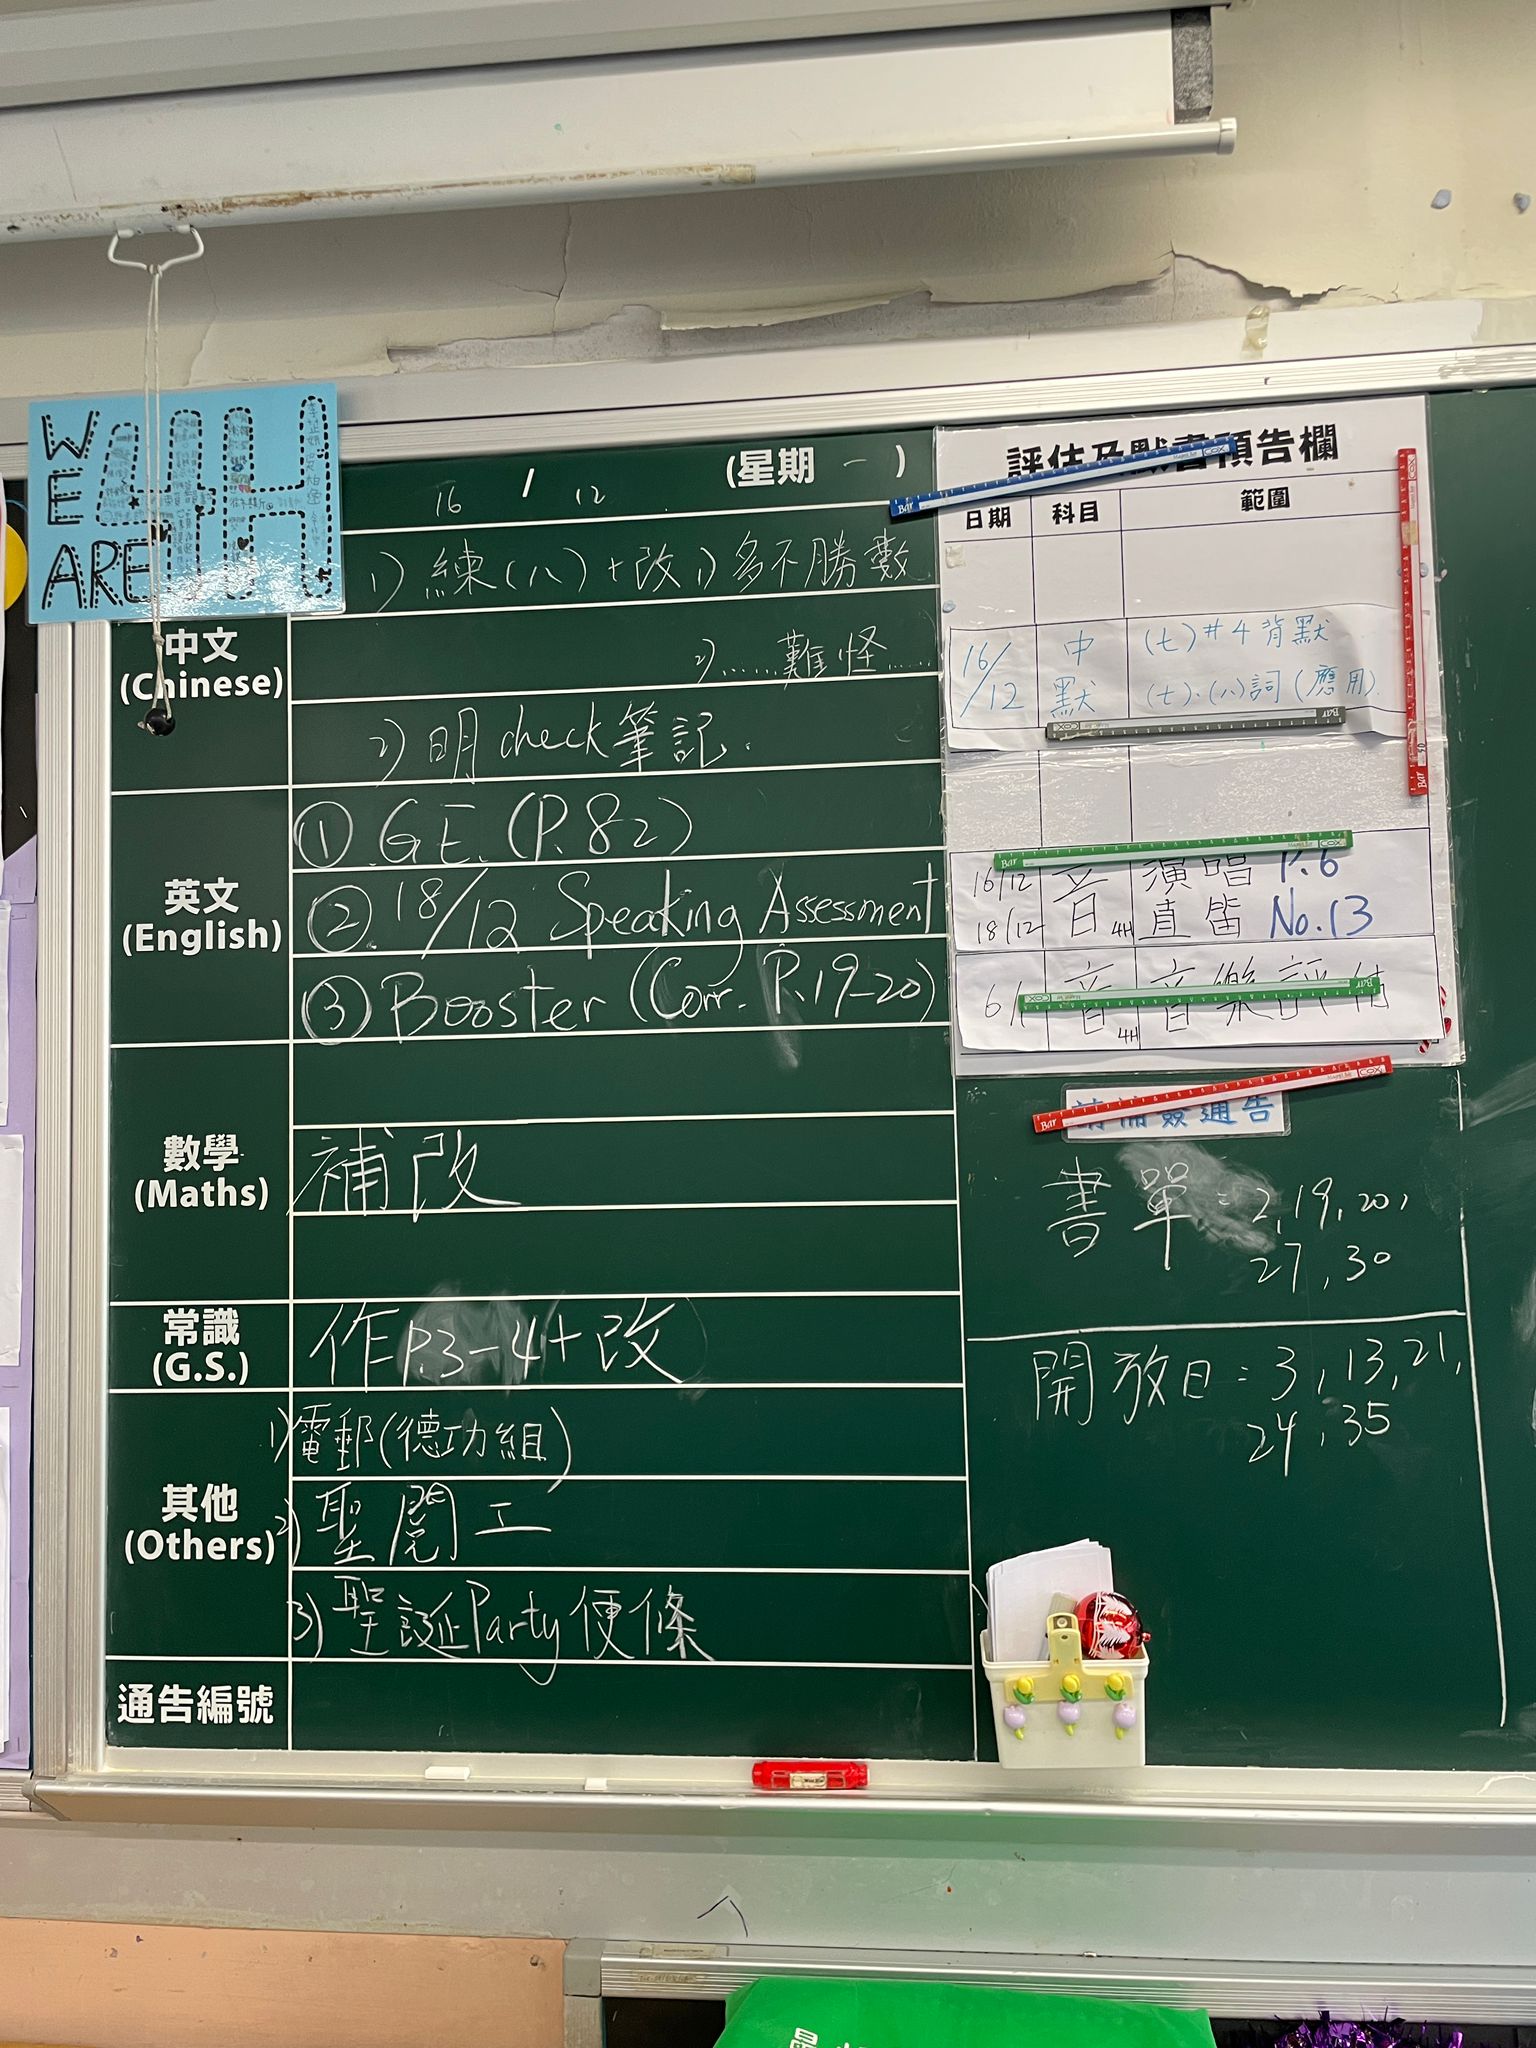 WE
ARE
4H
16 / 12 (星期一)
中文
(Chinese)
1) 練(八)+改 1) 多不勝數
2)......難怪......
2) 明check筆記.
英文
(English)
① G.E. (P.82)
② 18/12 Speaking Assessment
③ Booster (Corr. P.19-20)
數學
(Maths)
補改
常識
(G.S.)
作P.3-4+改
其他
(Others)
1) 電郵(德功組)
2) 聖閱工
3) 聖誕Party便條
通告編號
評估及默書預告欄
日期 科目 範圍
16/12 中默 (七)#4背默
(七)、(八)詞(應用)
16/12 音 演唱 P.6
18/12 4H 直笛 No.13
6/1 音 4H 音樂評估
簽通告
書單:2,19,20,
27,30
開放日:3,13,21,
24,35